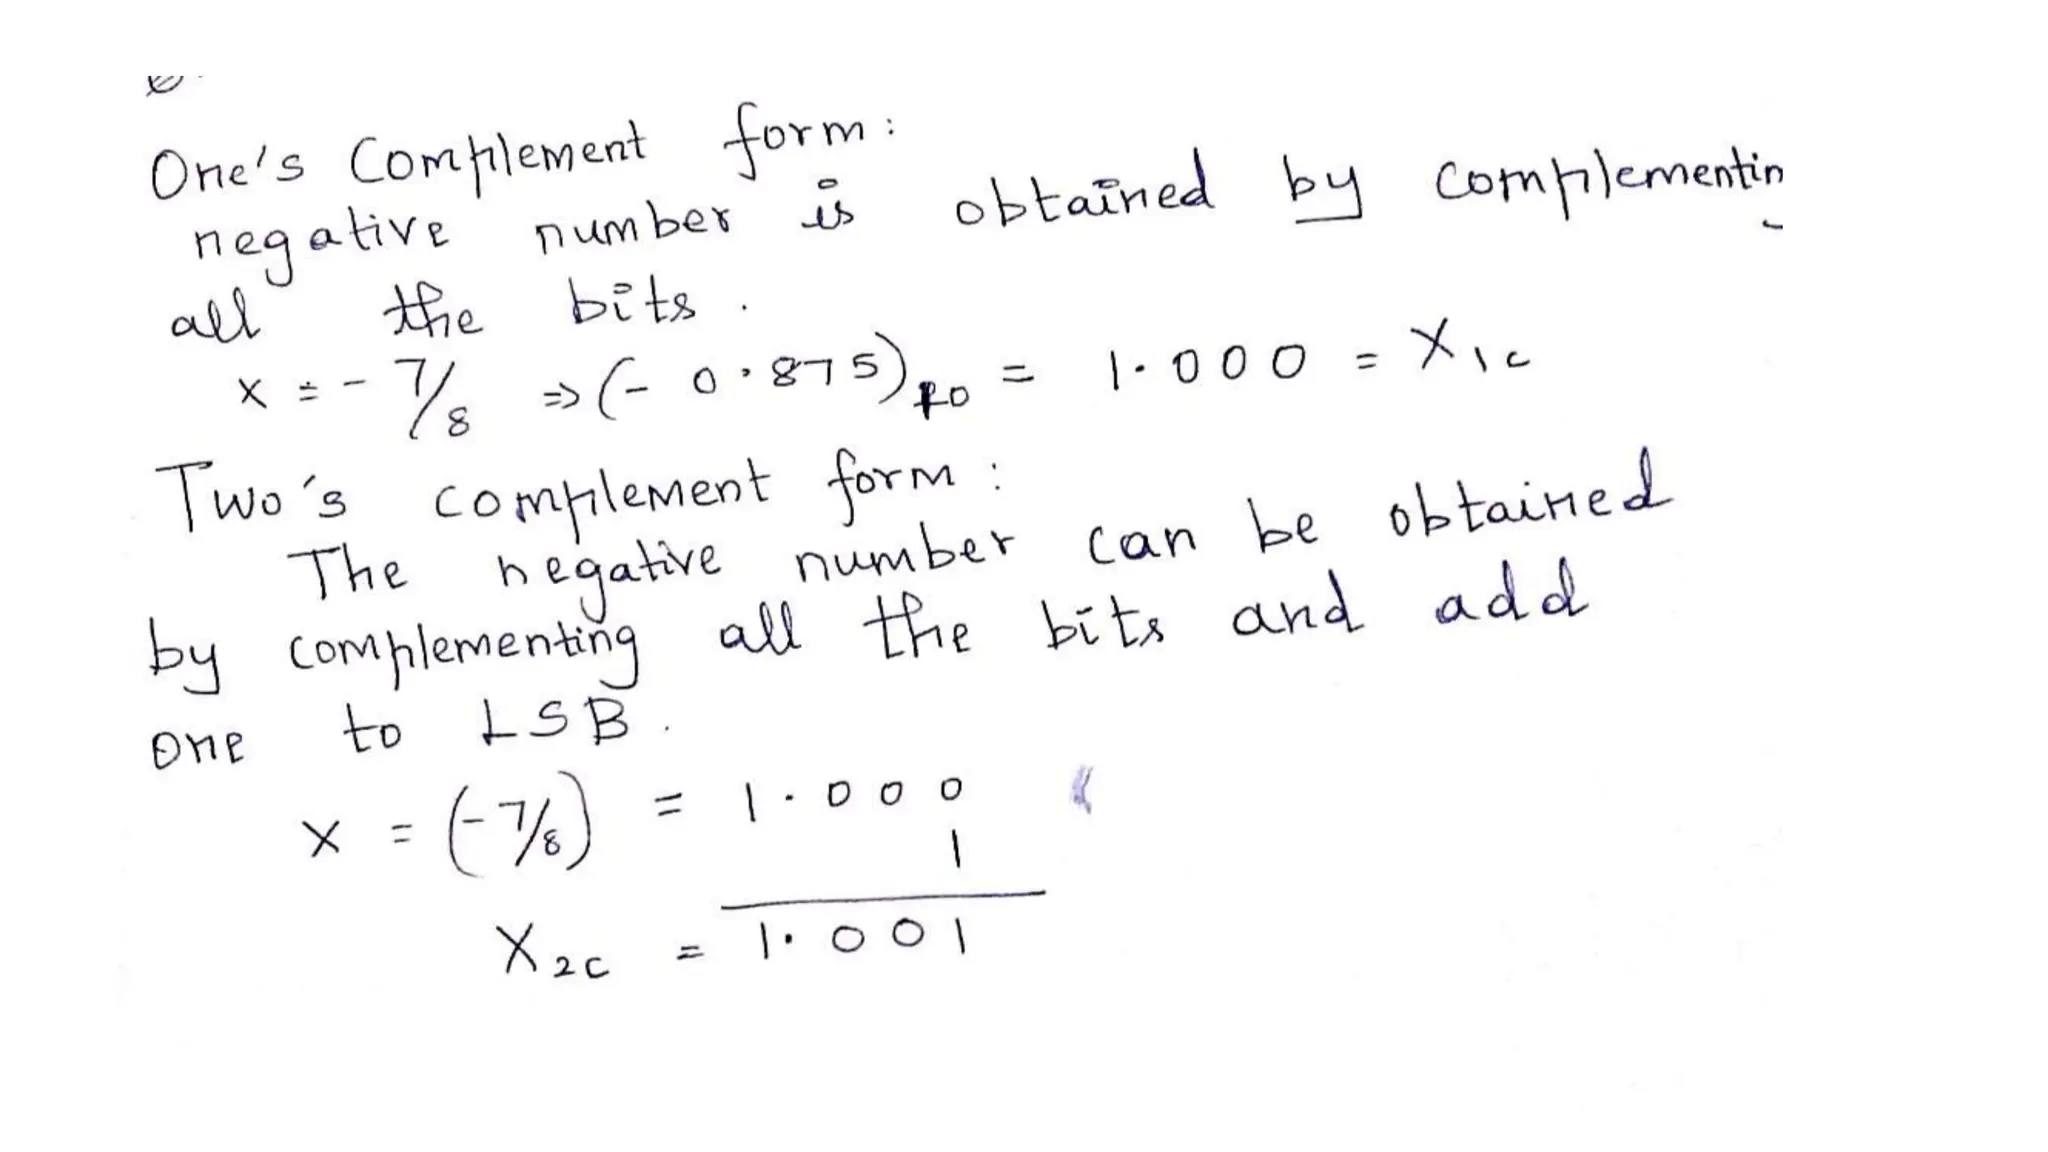 One's Complement form:
negative number is obtained by complementin
all the bits.
x = - 7/8 ⇒ (- 0.875)10 = 1.000 = X1c
Two's complement form:
The negative number can be obtained
by complementing all the bits and add
one to LSB.
x = (-7/8) = 1.000
1
X2C = 1.001